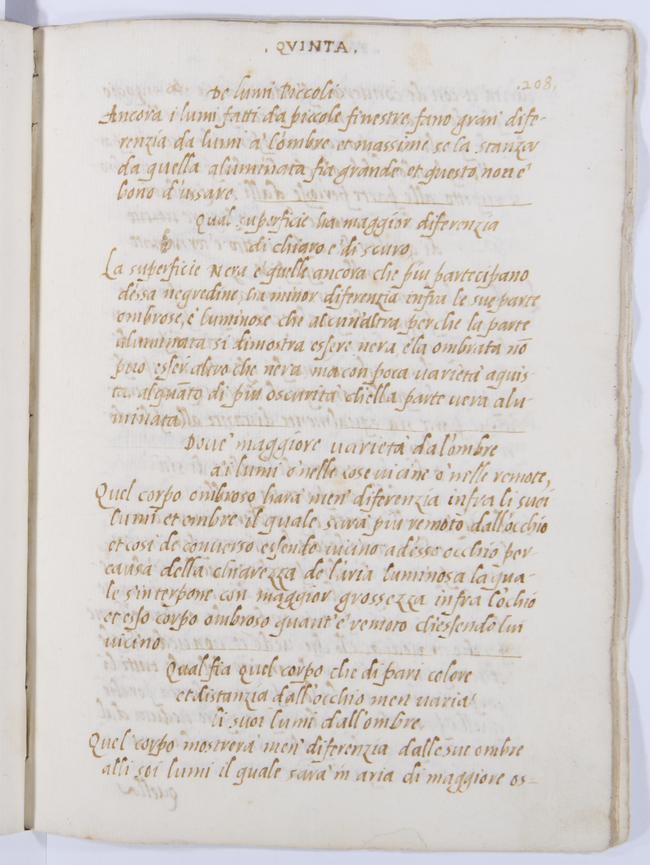 . QVINTA .
.208.
De lumi Piccoli
Ancora i lumi fatti da piccole finestre fano gran dife-
renzia da lumi a l'ombre et massime se la stanza
da quella aluminata fia grande et questo non e'
bono d'ussare
Qual superficie ha maggior diferenzia
di chiaro e' di scuro
La superficie Nera e quelle ancora che piu partecipano
dessa negredine ha minor diferenzia infra le sue parte
ombrose, e' luminose che alcun'altra perche la parte
aluminata si dimostra essere nera e la ombrata nō
puo esser altro che nera ma con poca varieta aquis
ta alquāto di piu oscurità che lla parte vera alu-
minata
Dove' maggiore varietà da l'ombre
ai lumi o' nelle cose vicine o' nelle remote,
Quel corpo ombroso harà men' diferenzia infra li suoi
lumi et ombre il quale sarà piu remoto dall'occhio
et cosi de converso essendo vicino ad esso occhio per
causa della chiarezza de l'aria luminosa la qua-
le s'interpone con maggior grossezza infra l'ochio
et esso corpo ombroso quant'è remoto ch'essendo lui
vicino
Qual fia quel corpo che di pari colore
et distanzia dall'occhio men varia'
li suoi lumi dall'ombre
Quel' corpo mostrerà men' diferenzia dalle sue ombre
alli soi lumi il quale sarà in aria di maggiore os=